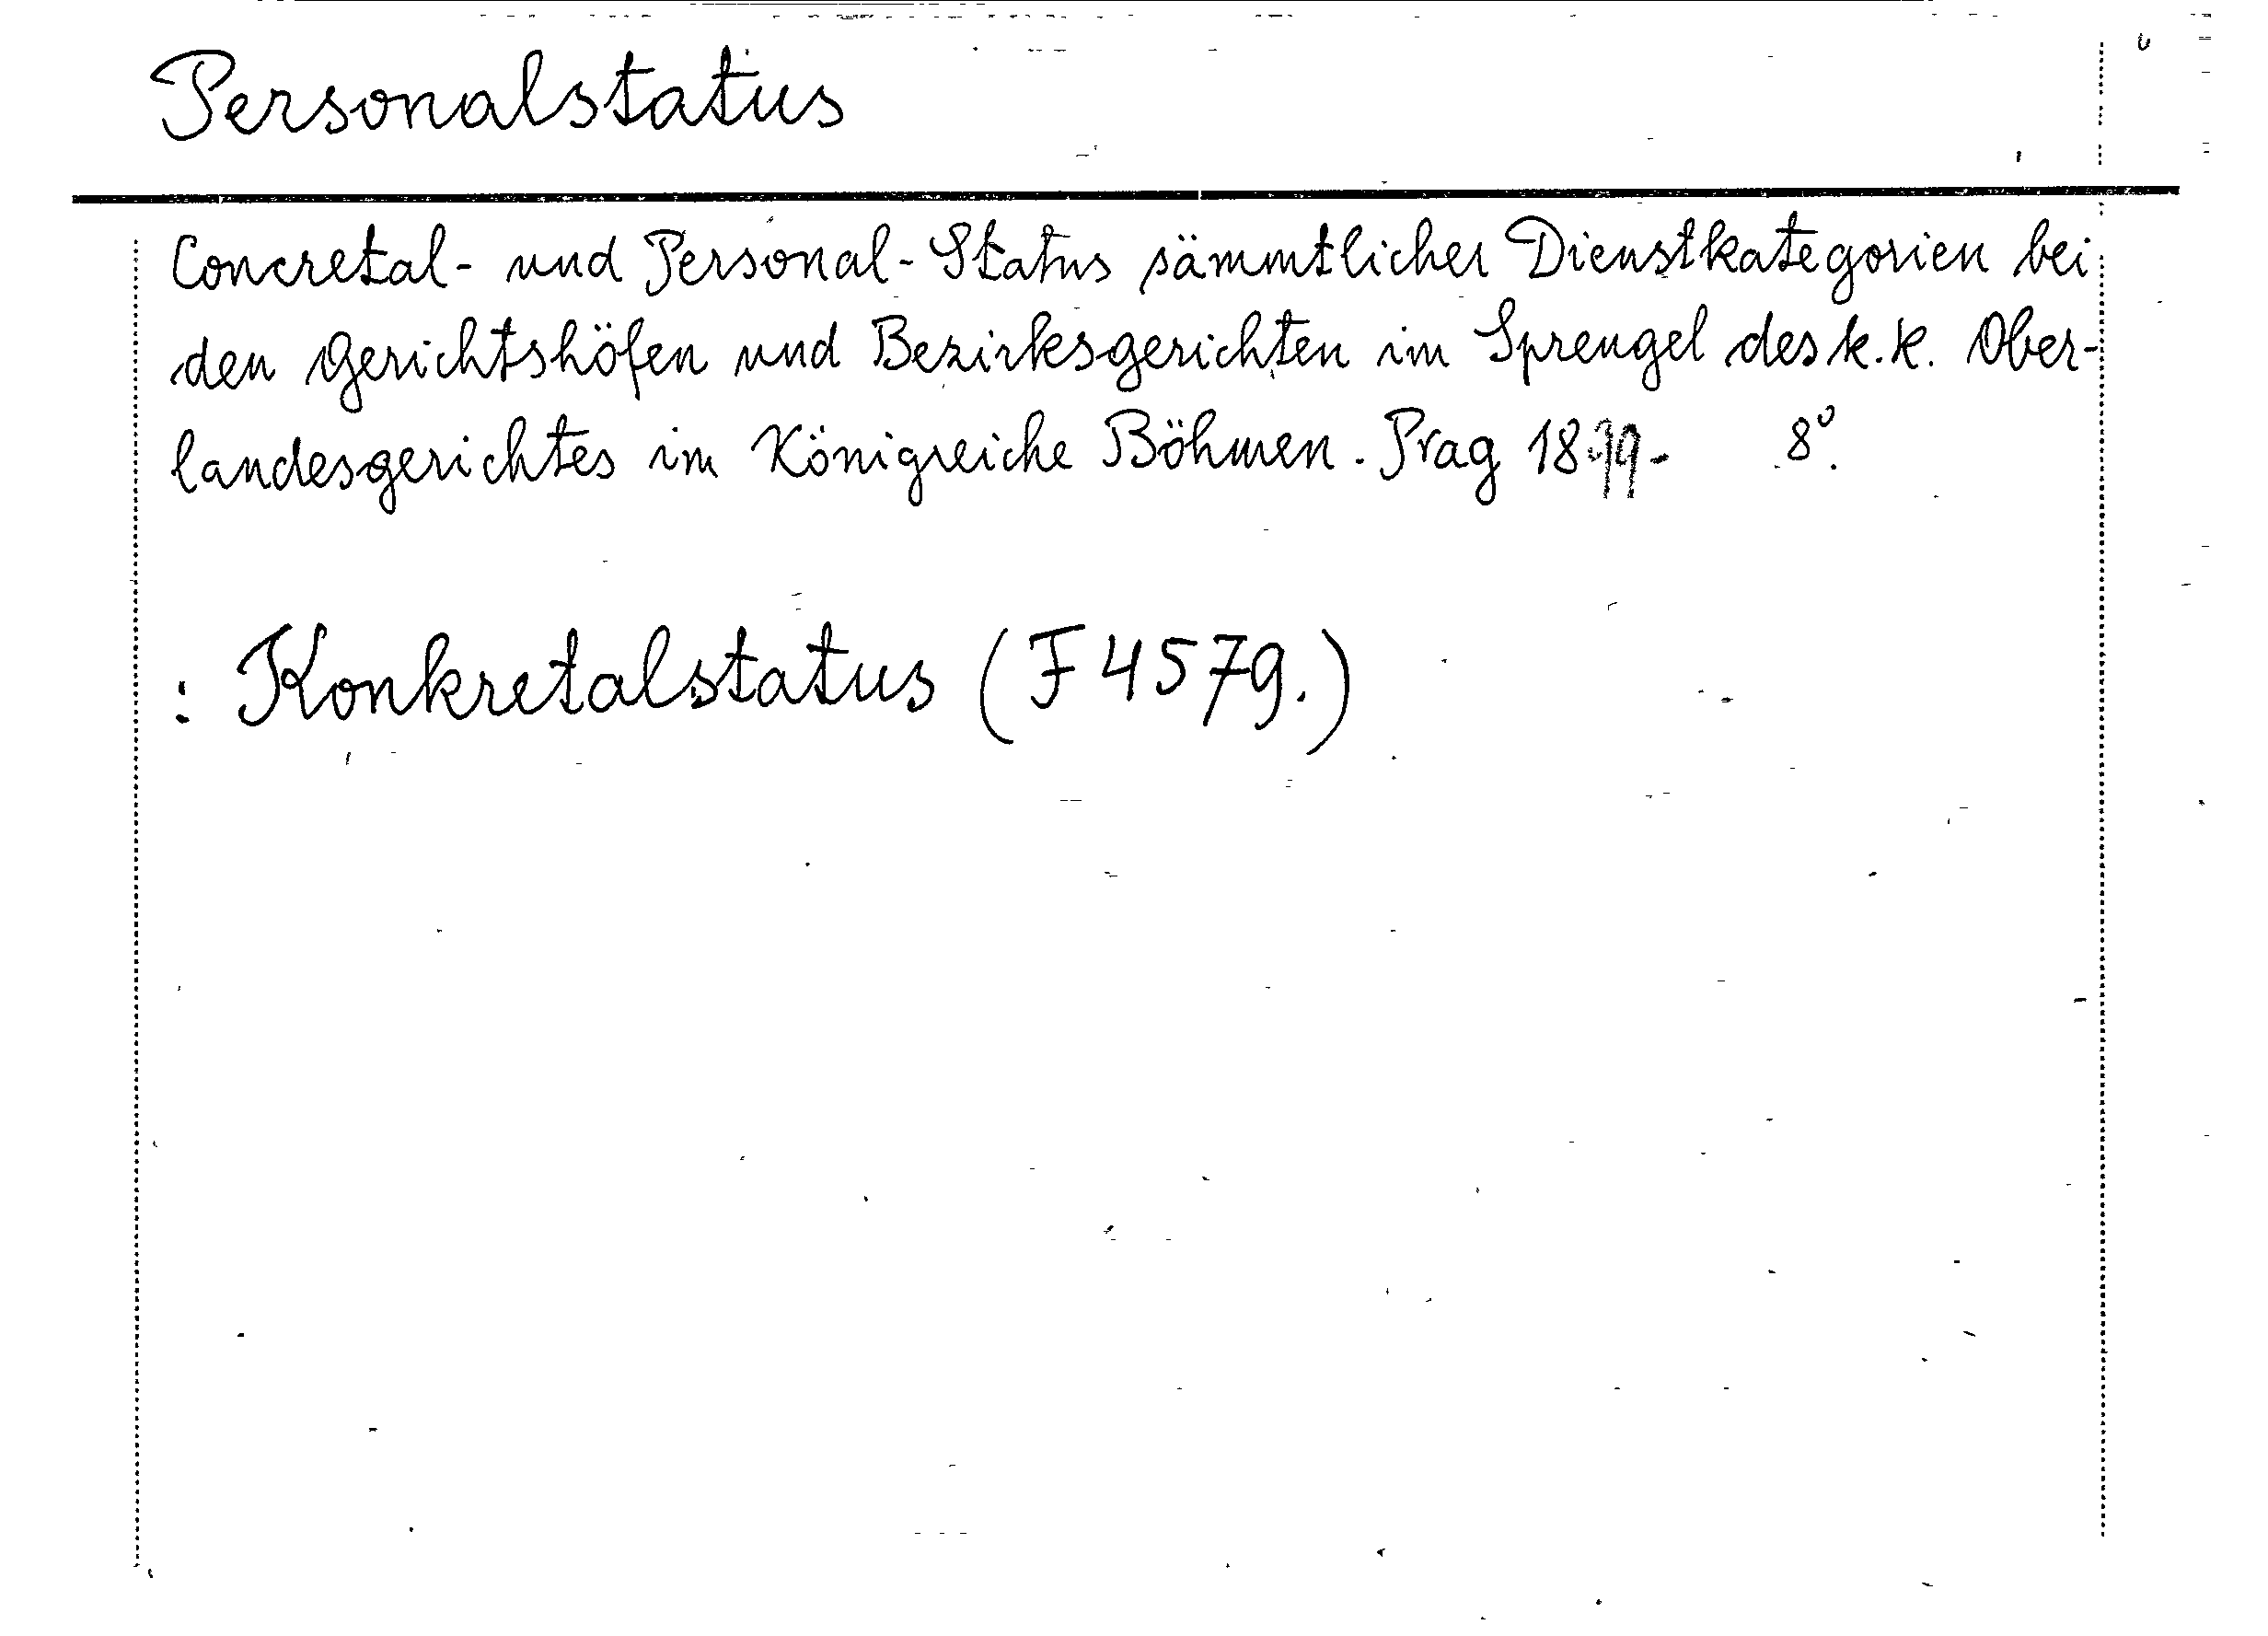 Personalstatus
Concretal- und Personal-Status sämmtlicher Dienstkategorien bei
den Gerichtshöfen und Bezirksgerichten im Sprengel des k. k. Ober-
landesgerichtes im Königreiche Böhmen. Prag 1899- 8°.
: Konkretalstatus (F 4579.)